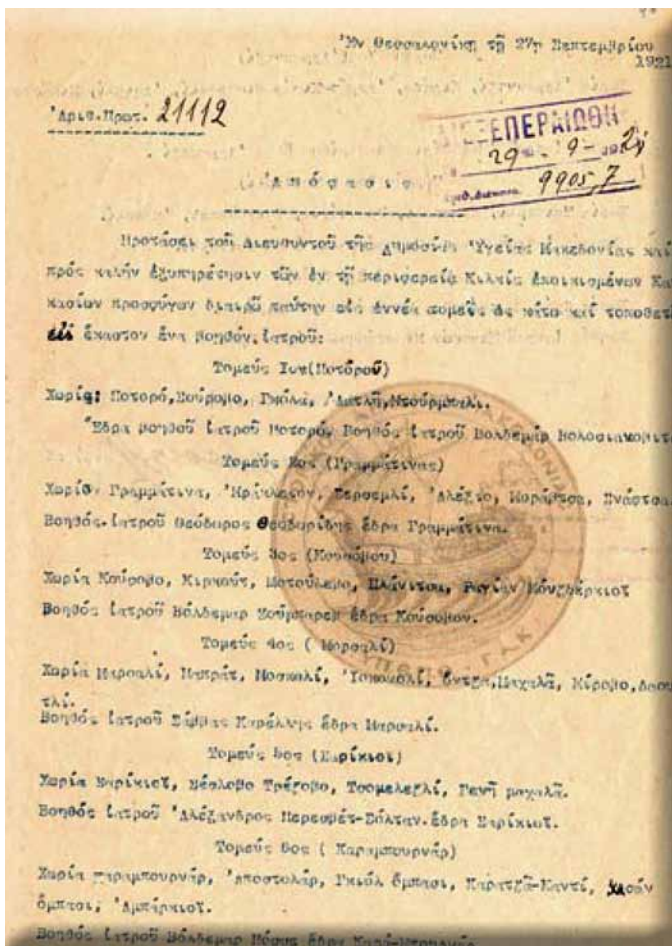 Ἐν Θεσσαλονίκῃ τῇ 27ῃ Σεπτεμβρίου
1921
Ἀριθ.Πρωτ. 21112
ΔΙΕΞΕΠΕΡΑΙΩΘΗ
29 - 9 - 1921
9905,7
Ἀπόφασις
Προτάσει τοῦ Διευθυντοῦ τῆς Δημοσίας Ὑγείας Μακεδονίας καί
πρός καλήν ἐξυπηρέτησιν τῶν ἐν τῇ περιφερείᾳ Κιλκίς ἐποικισμένων Καυ
κασίων προσφύγων διαιρῶ ταύτην εἰς ἐννέα τομεῖς ὡς κάτω καί τοποθετῶ
εἰς ἕκαστον ἕνα βοηθόν ἰατροῦ:
Τομεύς Ιος(Ποτόρου)
Χωρία: Ποτορό,Σούρομο,
Ἕδρα βοηθοῦ ἰατροῦ Ποτορό, Βοηθός ἰατροῦ Βολδεμάρ
Τομεύς 2ος (Γραμμάτινας)
Χωρία Γραμμάτινα, Σερσεμλί, Ἀλέξιο, Μοράφτσα, Σνάφτσα
Βοηθός ἰατροῦ Θεόδωρος Θεοδωρίδης ἕδρα Γραμμάτινα.
Τομεύς 3ος (Κουσόβου)
Χωρία Κούσοβο, Κιρκούτ, Μοτούλοβο, Πλάνιτσα,
Βοηθός ἰατροῦ Βόλδεμαρ ἕδρα Κούσοβον.
Τομεύς 4ος ( Μαρσαλί)
Χωρία Μαρσαλί, Μοσκαλί, Μαχαλᾶ, Κίροβο,
τλί.
Βοηθός ἰατροῦ Σάββας Καρέλλης ἕδρα Μαρσαλί.
Τομεύς 5ος (Σαρίκιοϊ)
Χωρία Σαρίκιοϊ, Σέσλοβο Τρέγοβο, Τσομελεξλί, Γενῆ μαχαλᾶ.
Βοηθός ἰατροῦ Ἀλέξανδρος Περεσβέτ-Σόλταν.ἕδρα Σαρίκιοϊ.
Τομεύς 6ος ( Καραμπουρνάρ)
Χωρία Καραμπουρνάρ, Ἀποστολάρ, Γκιόλ ὄμπασι, Καρατζᾶ-Καντί, Χασάν
ὄμπασι, Ἀμπάρκιοϊ.
Βοηθός ἰατροῦ Βόλδεμαρ ἕδρα